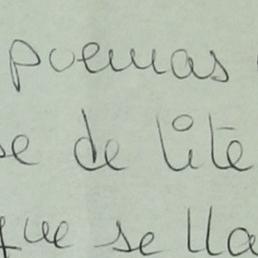 poemas
se de lite
que se lla